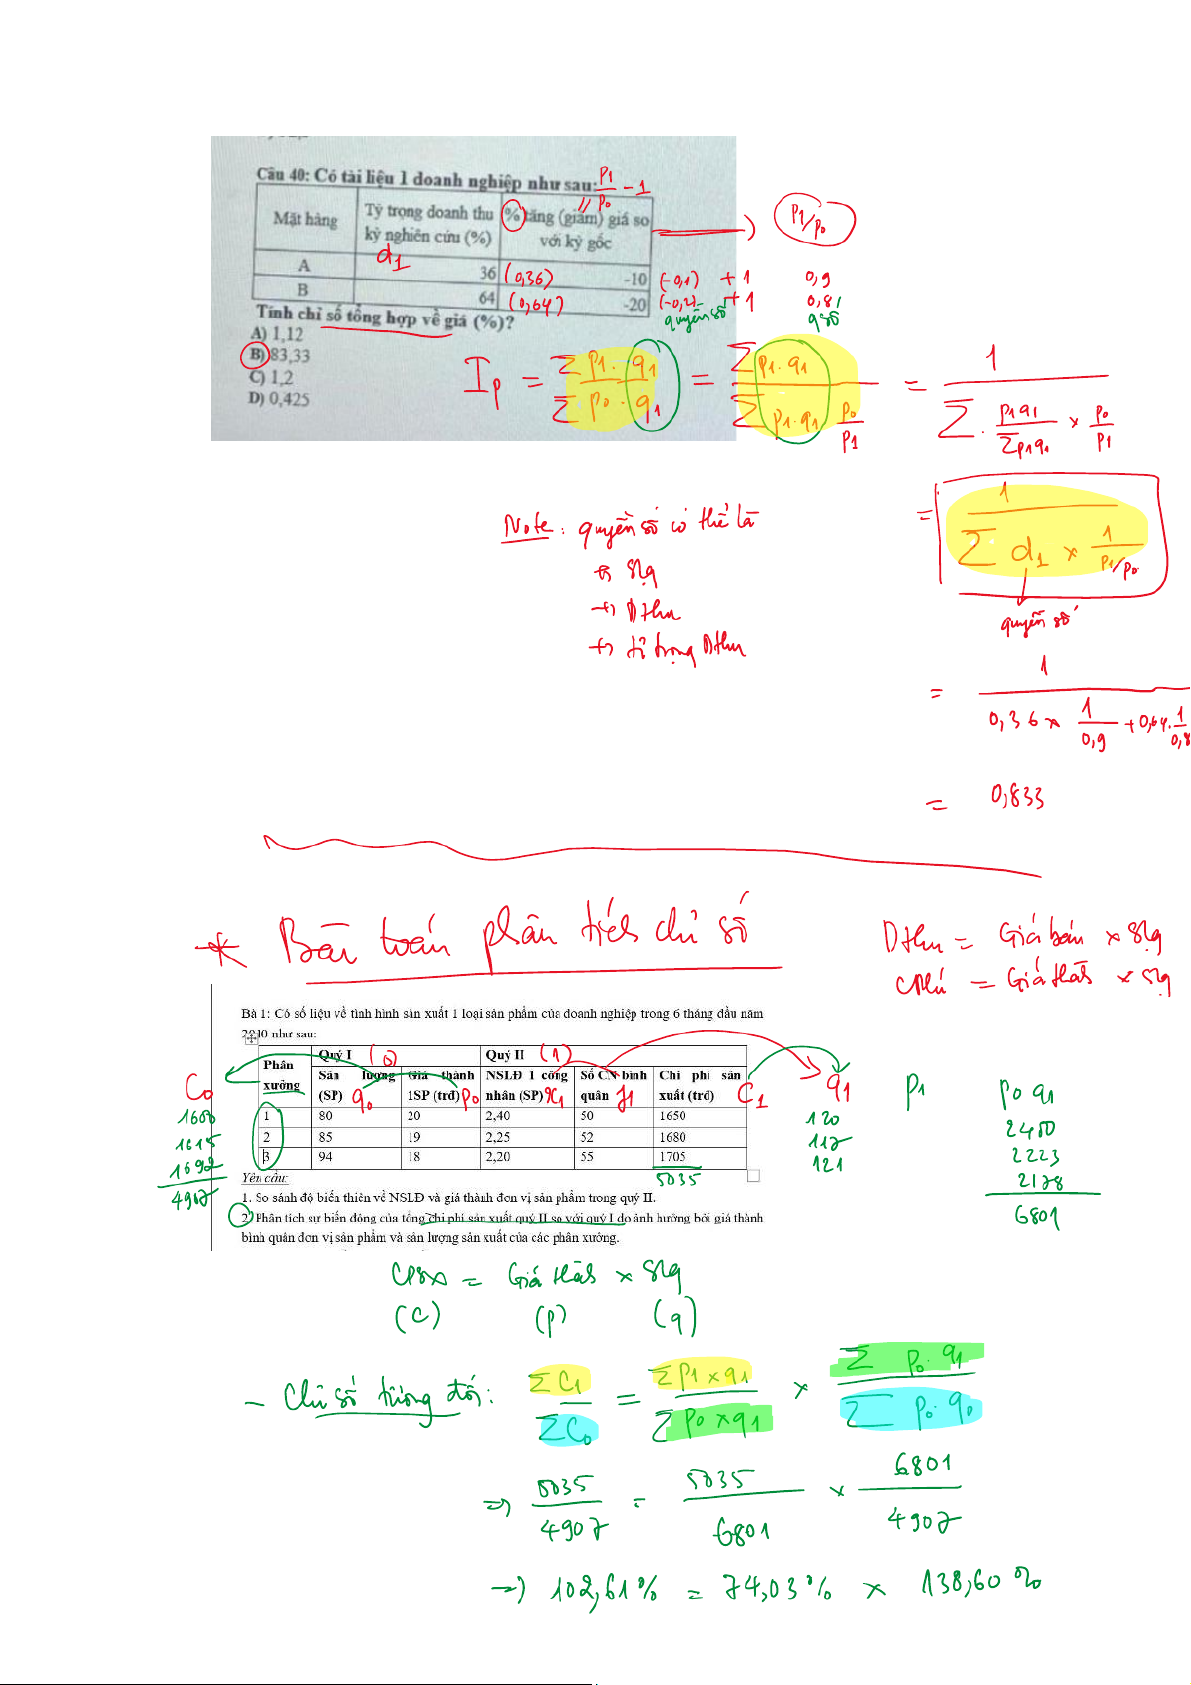 Câu 40: Có tài liệu 1 doanh nghiệp như sau: P1/P0 - 1
Mặt hàng | Tỷ trọng doanh thu kỳ nghiên cứu (%) | % tăng (giảm) giá so với kỳ gốc
d1
P1/P0
A | 36 (0,36) | -10 (-0,1) +1 0,9
B | 64 (0,64) | -20 (-0,2) +1 0,8
quyền số
Tính chỉ số tổng hợp về giá (%)?
A) 1,12
B) 83,33
C) 1,2
D) 0,425
Ip = Σp1.q1 / Σp0.q1 = Σp1.q1 / Σp1.q1 p0/p1 = 1 / Σ. p1q1/Σp1q1 × p0/p1
= 1 / Σ d1 × 1/P1/P0
quyền số
Note: quyền số có thể là
slg
→ Dthu
→ tỉ trọng Dthu
= 1 / 0,36 × 1/0,9 + 0,64.1/0,8
= 0,833
* Bài toán phân tích chỉ số
Dthu = Giá bán × slg
= Giá thành × slg
Bà 1: Có số liệu về tình hình sản xuất 1 loại sản phẩm của doanh nghiệp trong 6 tháng đầu năm
2010 như sau:
Phân xưởng | Quý I (0) | Quý II (1)
Sản lượng (SP) q0 | Giá thành 1SP (trđ) p0 | NSLĐ 1 công nhân (SP) x1 | Số CN bình quân f1 | Chi phí sản xuất (trđ) C1
C0 | q1 | P1 | p0 q1
1600 | 1 | 80 | 20 | 2,40 | 50 | 1650 | 120 | 2400
1615 | 2 | 85 | 19 | 2,25 | 52 | 1680 | 117 | 2223
1692 | 3 | 94 | 18 | 2,20 | 55 | 1705 | 121 | 2178
4907 | 5035 | 6801
Yêu cầu:
1. So sánh độ biến thiên về NSLĐ và giá thành đơn vị sản phẩm trong quý II.
2. Phân tích sự biến động của tổng chi phí sản xuất quý II so với quý I do ảnh hưởng bởi giá thành
bình quân đơn vị sản phẩm và sản lượng sản xuất của các phân xưởng.
CPSX = Giá thành × slg
(C) (p) (q)
- Chỉ số tương đối: ΣC1 / ΣC0 = Σp1×q1 / Σp0×q1 × Σp0.q1 / Σp0.q0
=> 5035/4907 = 5035/6801 × 6801/4907
→ 102,61% = 74,03% × 138,60%